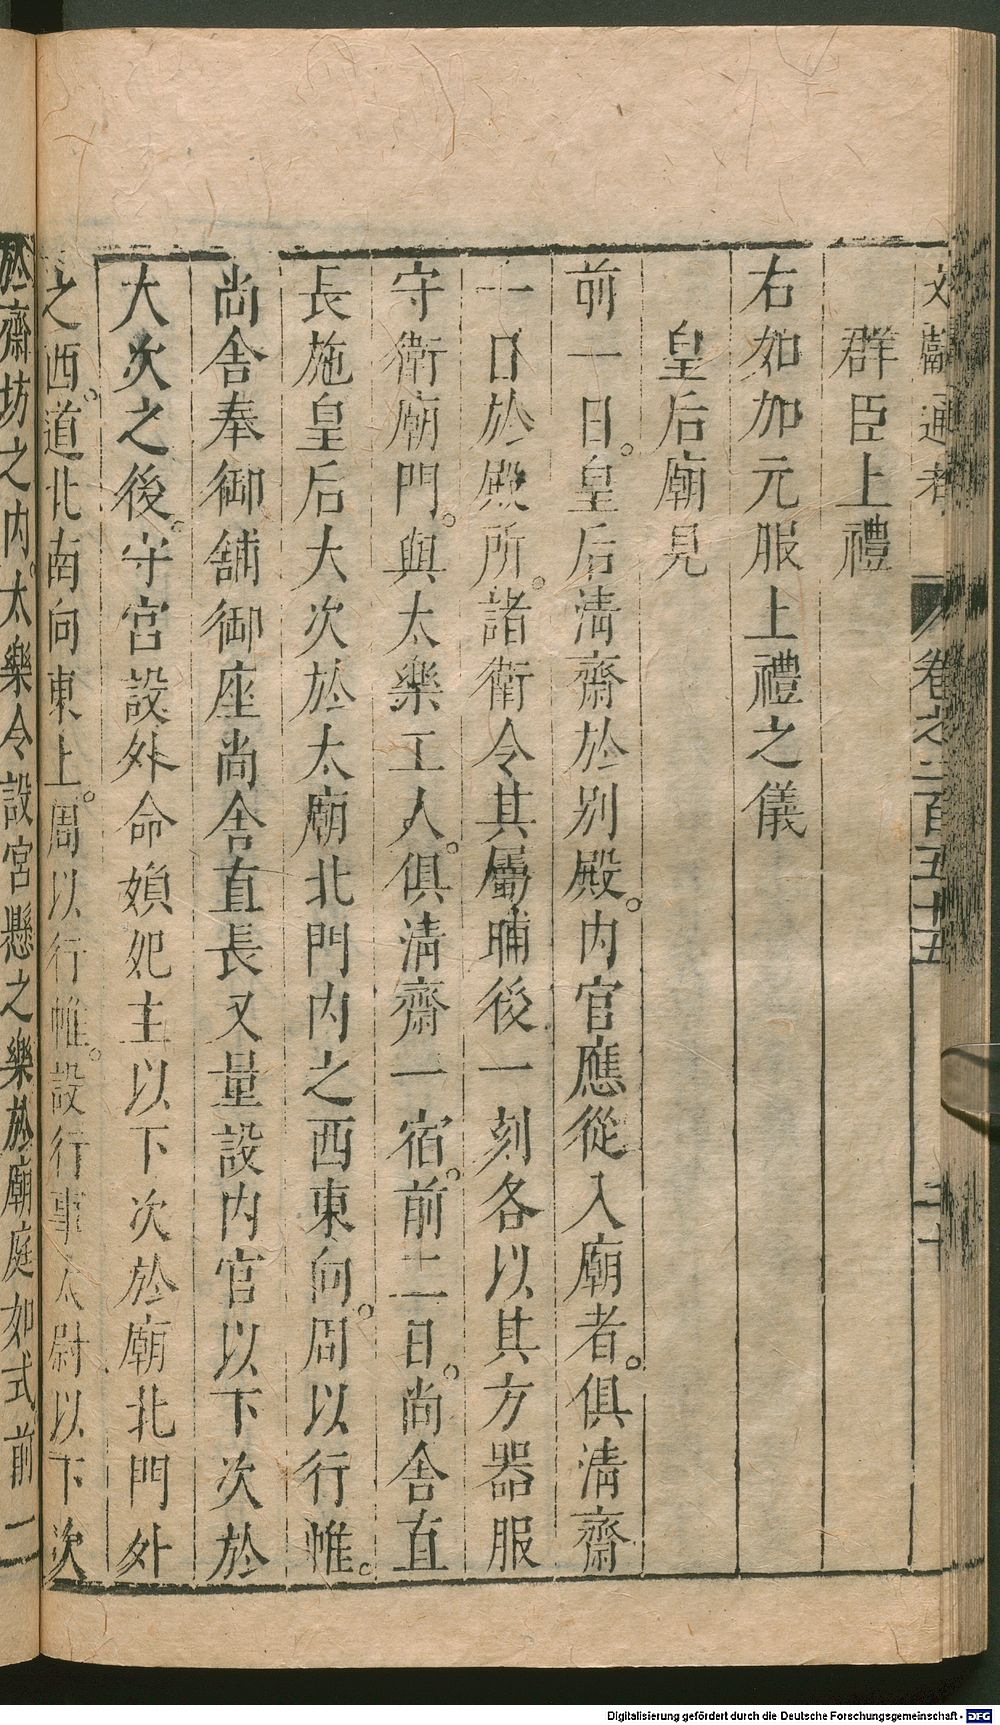 文獻通考 卷之二百五十五 二十
群臣上禮
右如加元服上禮之儀
皇后廟見
前一日。皇后淸齋於别殿。内官應從入廟者。俱淸齋
一日於殿所。諸衛令其屬晡後一刻各以其方器服
守衛廟門。與太樂工人。俱淸齋一宿。前二日。尚舎直
長施皇后大次於太廟北門内之西東向。周以行帷。
尚舎奉御舖御座尚舎直長又量設内官以下次於
大次之後。守宮設外命嬪妃主以下次於廟北門外
之西。道北南向東上。周以行帷。設行事太尉以下次
於齋坊之内。太樂令設宮懸之樂於廟庭如式前一
Digitalisierung gefördert durch die Deutsche Forschungsgemeinschaft - DFG